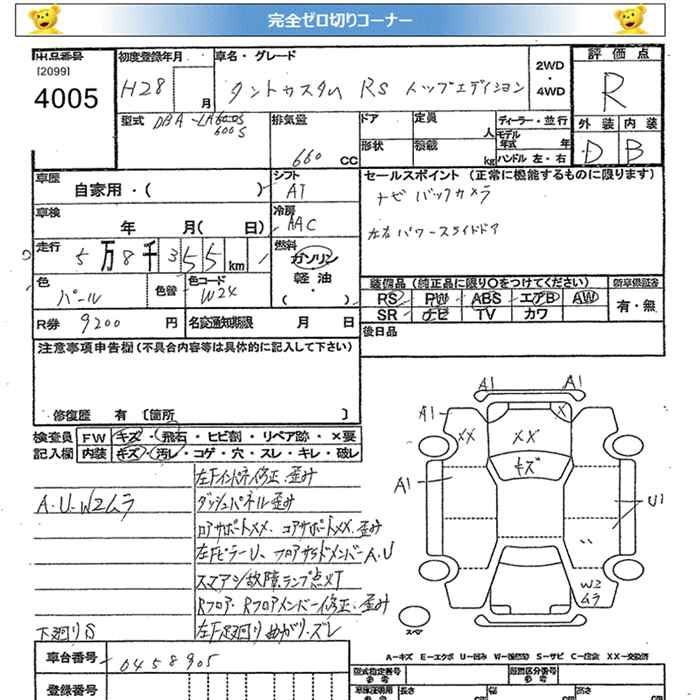 完全ゼロ切りコーナー
出品番号 初度登録年月 車名・グレード 2WD ・ 4WD 評価点
[2099] 4005 H28 月 タントカスタム RS トップエディション R
型式 DBA-LA600S 600S 排気量 660 CC ドア 定員 人 ディーラー・並行 外装 内装
形状 積載 kg モデル年式 年 ハンドル 左・右 D B
車歴 自家用・( ) シフト AT セールスポイント (正常に機能するものに限ります)
ナビ バックカメラ
車検 年 月( 日) 冷房 AAC
左右パワースライドドア
走行 5万8千355km 燃料 ガソリン 軽油 ・( )
色 パール 色替 色コード W24 装備品(純正品に限り○をつけてください) 新車保証書
RS PW ABS エアB AW 有・無
R券 9200 円 名変通知期限 月 日 SR ナビ TV カワ
注意事項申告欄(不具合内容等は具体的に記入して下さい) 後日品
修復歴 有 [箇所 ]
検査員 FW キズ・飛石・ヒビ割・リペア跡・×要
記入欄 内装 キズ・汚レ・コゲ・穴・スレ・キレ・破レ
A1 A1
A1 XX XX X
キズ
A1 U1
W2ムラ
スペア
左Fインパネ修正、歪み
A・U・W2ムラ ダッシュパネル歪み
ロアサポートXX、コアサポートXX、歪み
左FピラーU、フロアサイドメンバーA、U
スマアシ故障ランプ点灯
Rフロア・Rフロアメンバー修正、歪み
下廻りS 左F足廻り曲がり・ズレ
A—キズ E—エクボ U—凹み W—補修跡 S—サビ C—腐食 XX—交換済
車台番号 0458905 型式指定番号 参考 類別区分番号 参考
登録番号 長さ cm 幅 cm 高さ cm